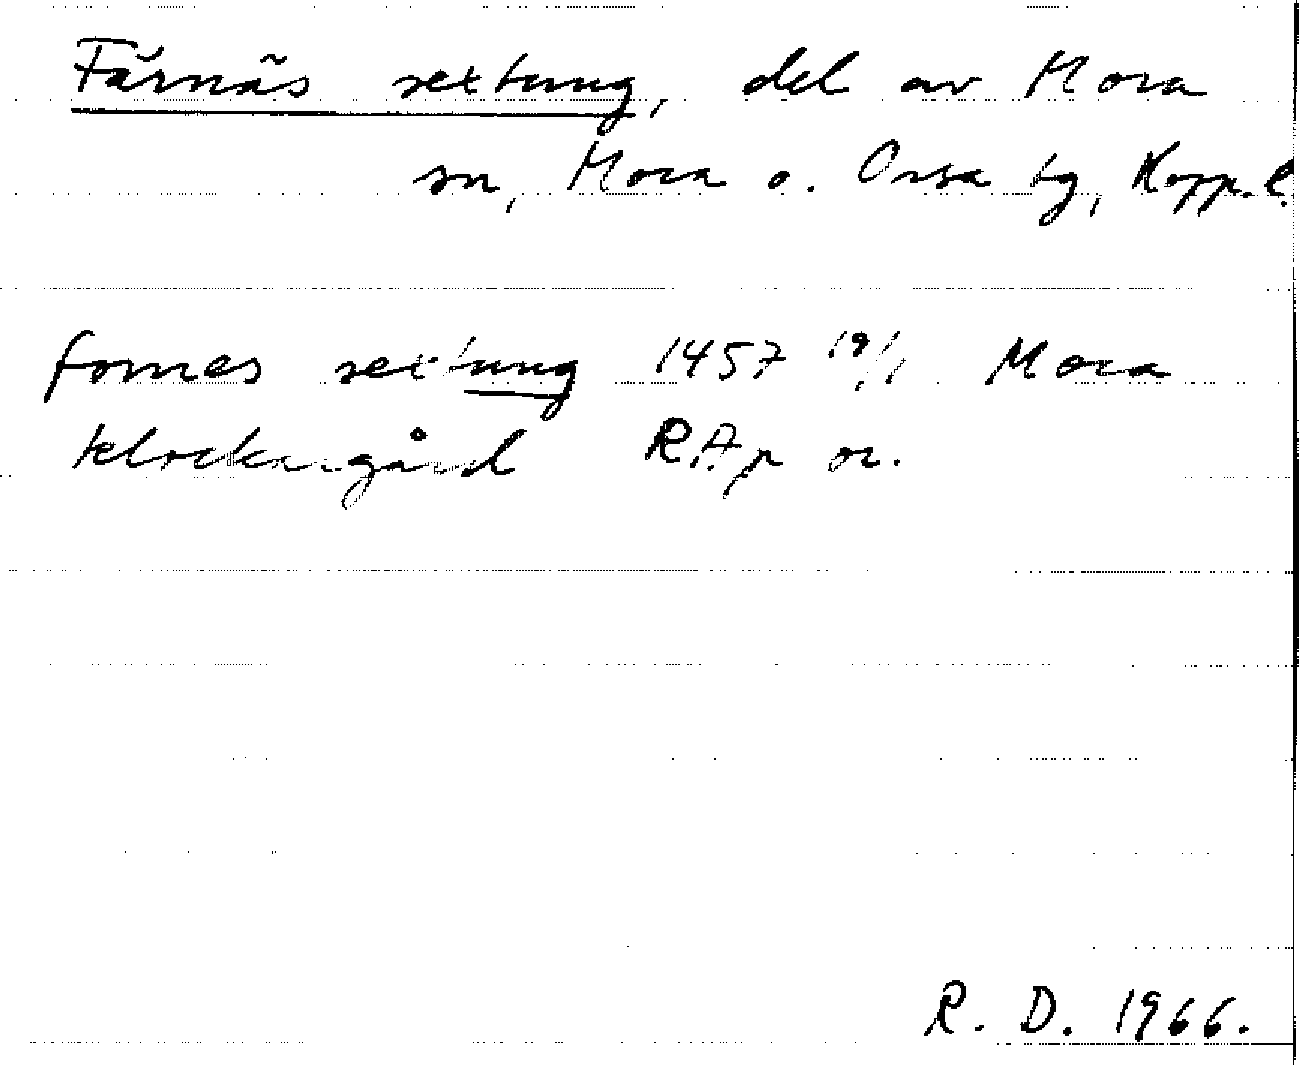 Färnäs sextung, del av Mora
sn, Mora o. Orsa tg, Kopp. l.
fornes sextung 1457 19/1 Mora
klockargård RAp or.
R. D. 1966.